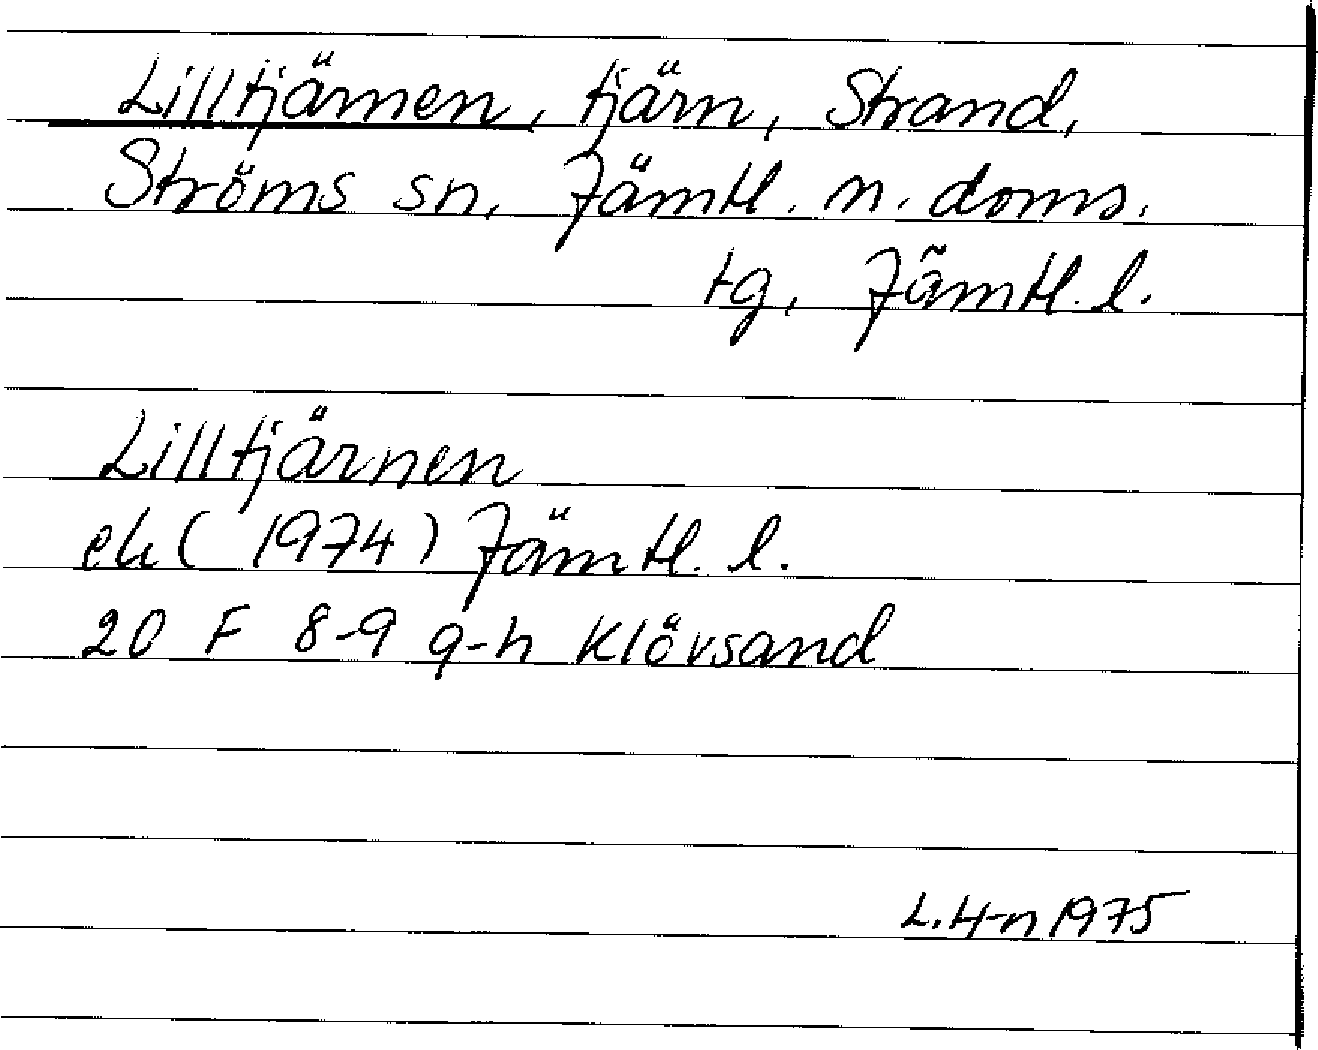 Lilltjärnen, tjärn, Strand,
Ströms sn, Jämtl. n. doms.
tg, Jämtl. l.
Lilltjärnen
ek (1974) Jämtl. l.
20 F 8-9 g-h Klövsand
L. H-n 1975